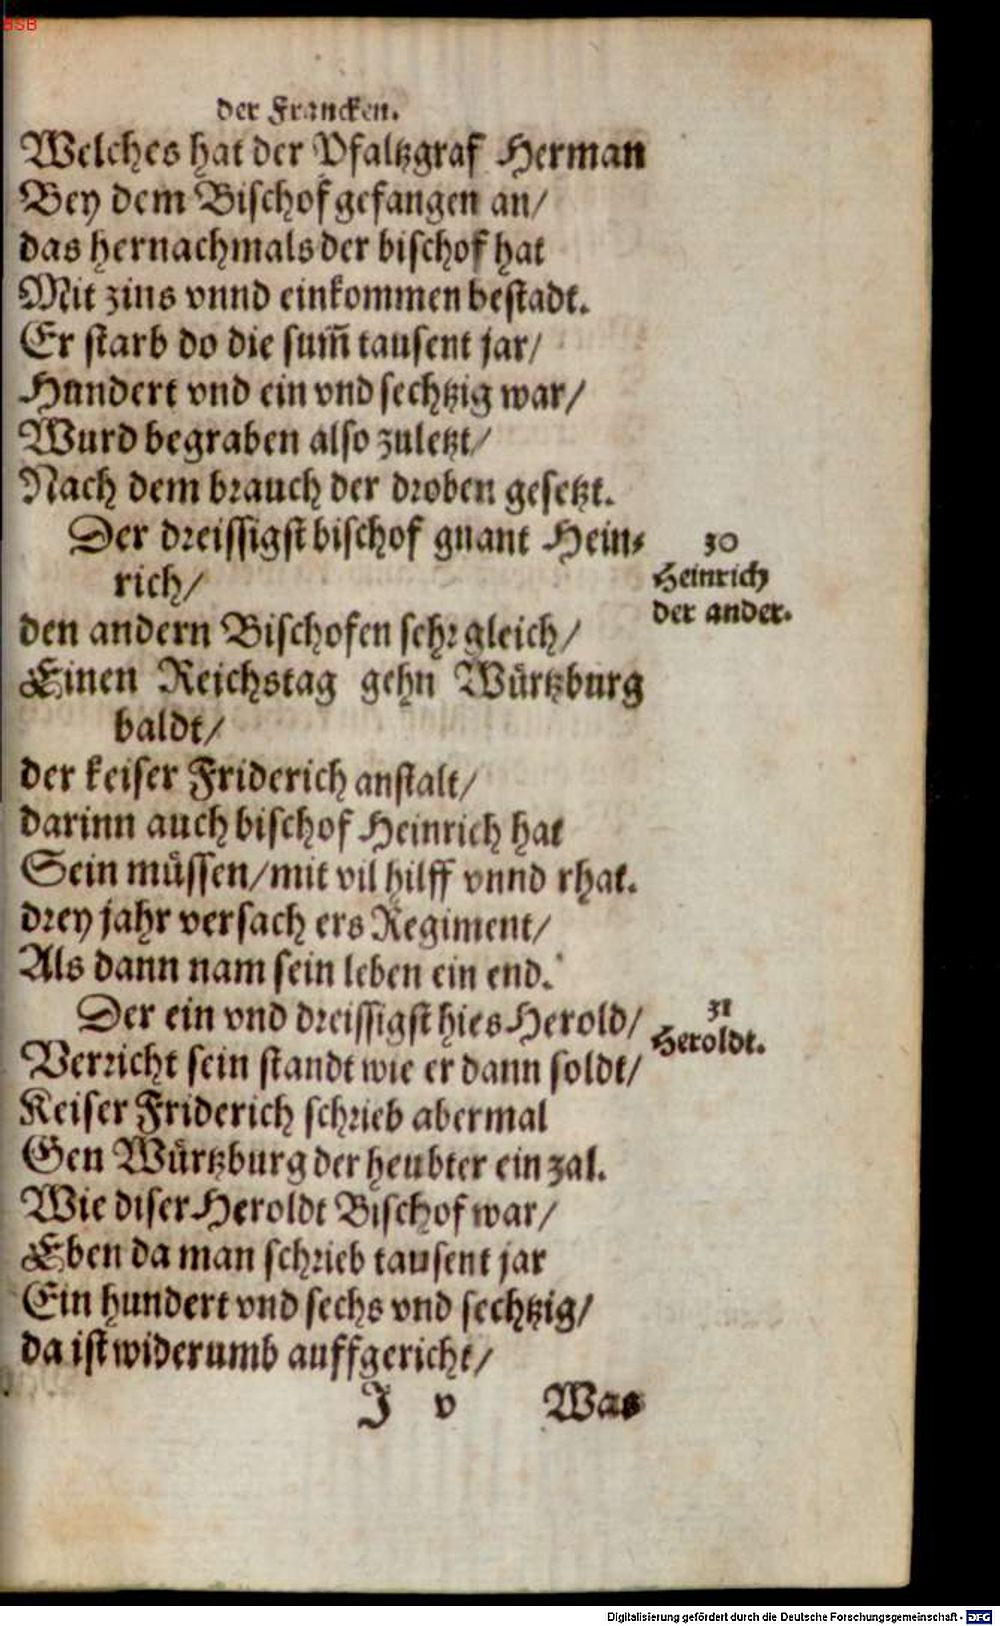 BSB
der Francken.
Welches hat der Pfaltzgraf Herman
Bey dem Bischof gefangen an/
das hernachmals der bischof hat
Mit zins vnnd einkommen bestadt.
Er starb do die sum̃ tausent jar/
Hundert vnd ein vnd sechtzig war/
Wurd begraben also zuletzt/
Nach dem brauch der droben gesetzt.
Der dreissigst bischof gnant Hein⸗
rich/
den andern Bischofen sehr gleich/
Einen Reichstag gehn Wuͤrtzburg
baldt/
der keiser Friderich anstalt/
darinn auch bischof Heinrich hat
Sein muͤssen/mit vil hilff vnnd rhat.
drey jahr versach ers Regiment/
Als dann nam sein leben ein end.
30
Heinrich
der ander.
Der ein vnd dreissigst hies Herold/
Verricht sein standt wie er dann soldt/
Keiser Friderich schrieb abermal
Gen Wuͤrtzburg der heubter ein zal.
Wie diser Heroldt Bischof war/
Eben da man schrieb tausent jar
Ein hundert vnd sechs vnd sechtzig/
da ist widerumb auffgericht/
31
Heroldt.
J v Was
Digitalisierung gefördert durch die Deutsche Forschungsgemeinschaft - DFG